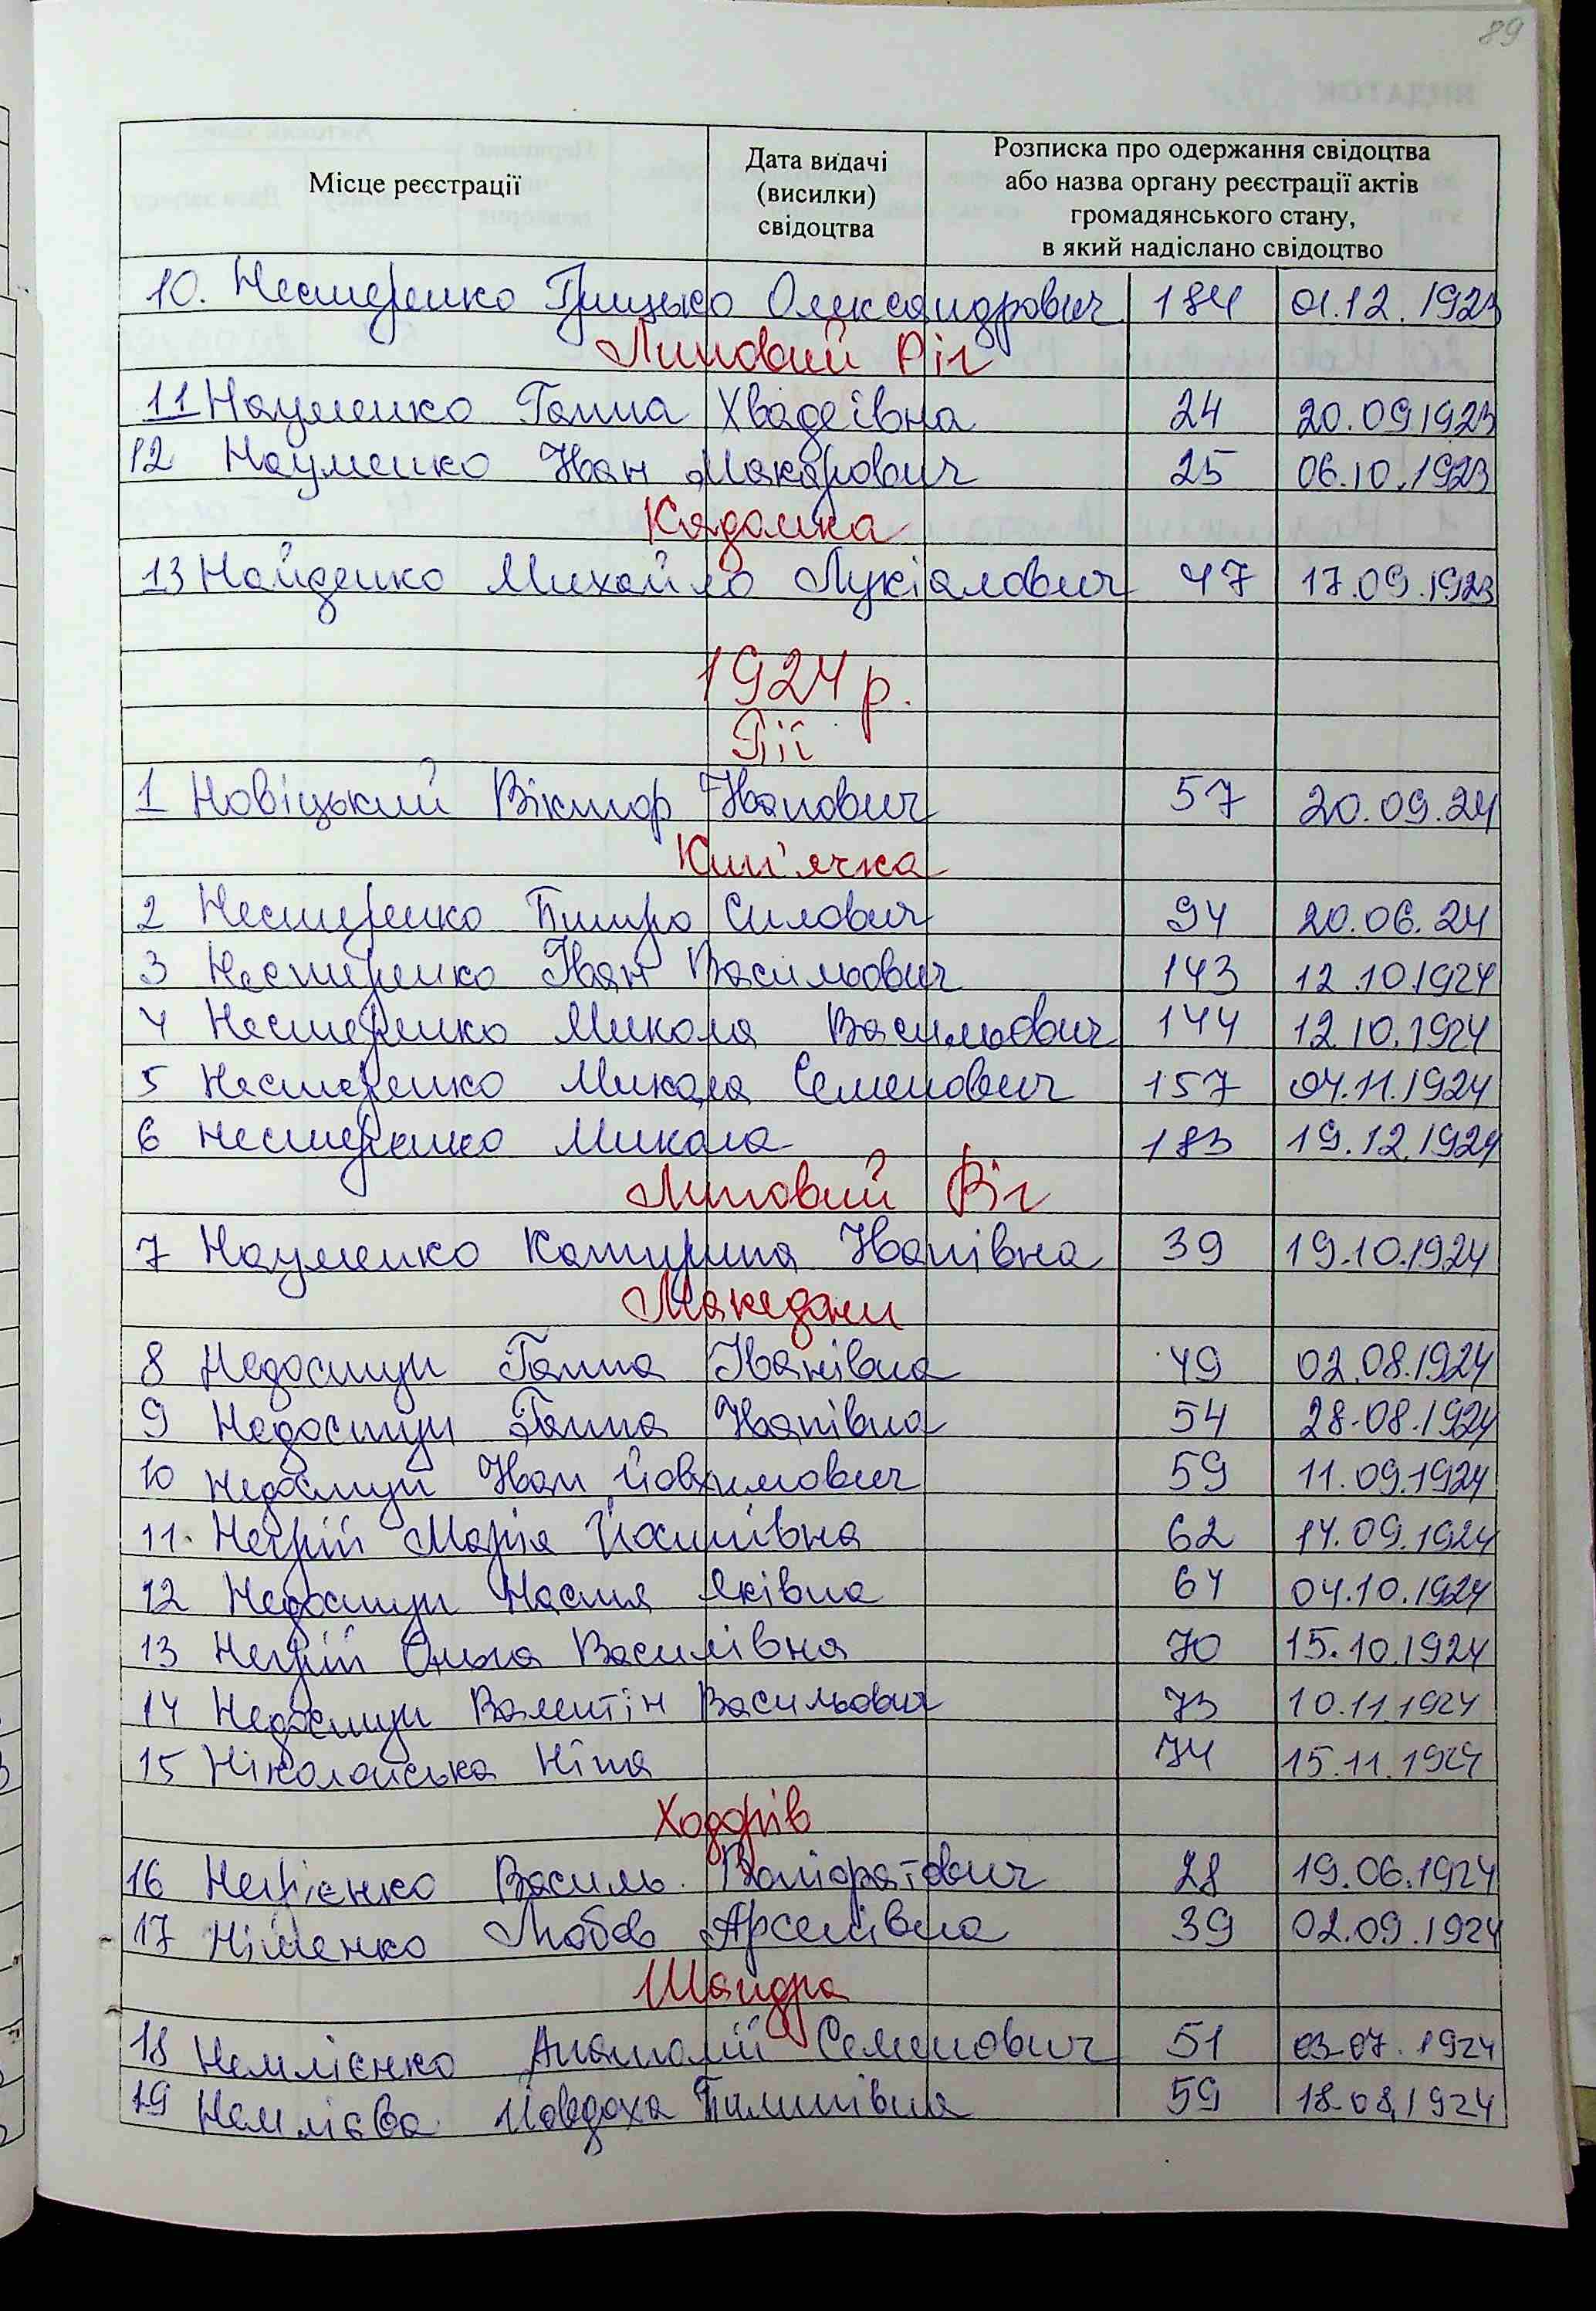 89
Місце реєстрації
Дата видачі
(висилки)
свідоцтва
Розписка про одержання свідоцтва
або назва органу реєстрації актів
громадянського стану,
в який надіслано свідоцтво
10. Нестеренко Грицько Олександрович 184 01.12.1923
Липовий Ріг
11 Науменко Ганна Хвадеівна 24 20.09.1923
12 Науменко Іван Макарович 25 06.10.1923
Кадомка
13 Найденко Михайло Лукіянович 47 17.09.1923
1924 р.
Гії
1 Новіцький Віктор Іванович 57 20.09.24
Кип'ячка
2 Нестеренко Петро Силович 94 20.06.24
3 Нестеренко Іван Васильович 143 12.10.1924
4 Нестеренко Микола Васильович 144 12.10.1924
5 Нестеренко Микола Семенович 157 04.11.1924
6 Нестеренко Микола 183 19.12.1924
Липовий Ріг
7 Науменко Катирина Іванівна 39 19.10.1924
Македони
8 Недоступ Ганна Іванівна 49 02.08.1924
9 Недоступ Ганна Іванівна 54 28.08.1924
10 Недоступ Іван Йовхимович 59 11.09.1924
11. Негрій Марія Йосипівна 62 14.09.1924
12 Недоступ Настя Яківна 64 04.10.1924
13 Негрій Ольга Василівна 70 15.10.1924
14 Недоступ Валентін Васильович 73 10.11.1924
15 Ніколайська Ніна 74 15.11.1924
Ходорів
16 Негрієнко Василь 28 19.06.1924
17 Німенко Любов Арсенівна 39 02.09.1924
Шандра
18 Немлієнко Анатолій Семенович 51 03.07.1924
19 Немлієва Йовдоха Пилипівна 59 18.08.1924